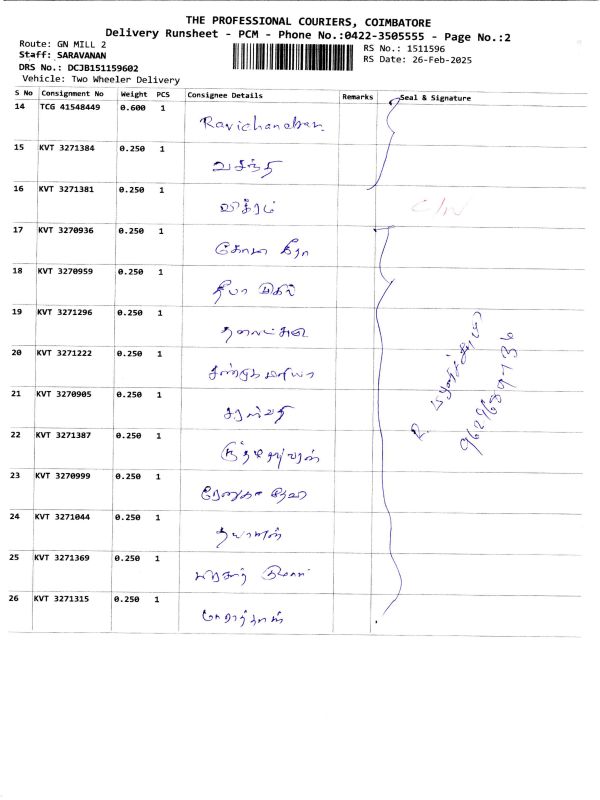 THE PROFESSIONAL COURIERS, COIMBATORE
Delivery Runsheet - PCM - Phone No.:0422-3505555 - Page No.:2
Route: GN MILL 2
RS No.: 1511596
Staff: SARAVANAN
RS Date: 26-Feb-2025
DRS No.: DCJB151159602
Vehicle: Two Wheeler Delivery
S No Consignment No Weight PCS Consignee Details Remarks Seal & Signature
14 TCG 41548449 0.600 1 Ravichandran
15 KVT 3271384 0.250 1 வசந்தி
16 KVT 3271381 0.250 1 விக்ரம்
17 KVT 3270936 0.250 1
18 KVT 3270959 0.250 1 தீபா
19 KVT 3271296 0.250 1
20 KVT 3271222 0.250 1 சண்முக பிரியா
21 KVT 3270905 0.250 1 சரஸ்வதி
22 KVT 3271387 0.250 1
23 KVT 3270999 0.250 1 ரேணுகா தேவி
24 KVT 3271044 0.250 1 தயாளன்
25 KVT 3271369 0.250 1 பிரசாந்த் குமார்
26 KVT 3271315 0.250 1 கோபிநாத்